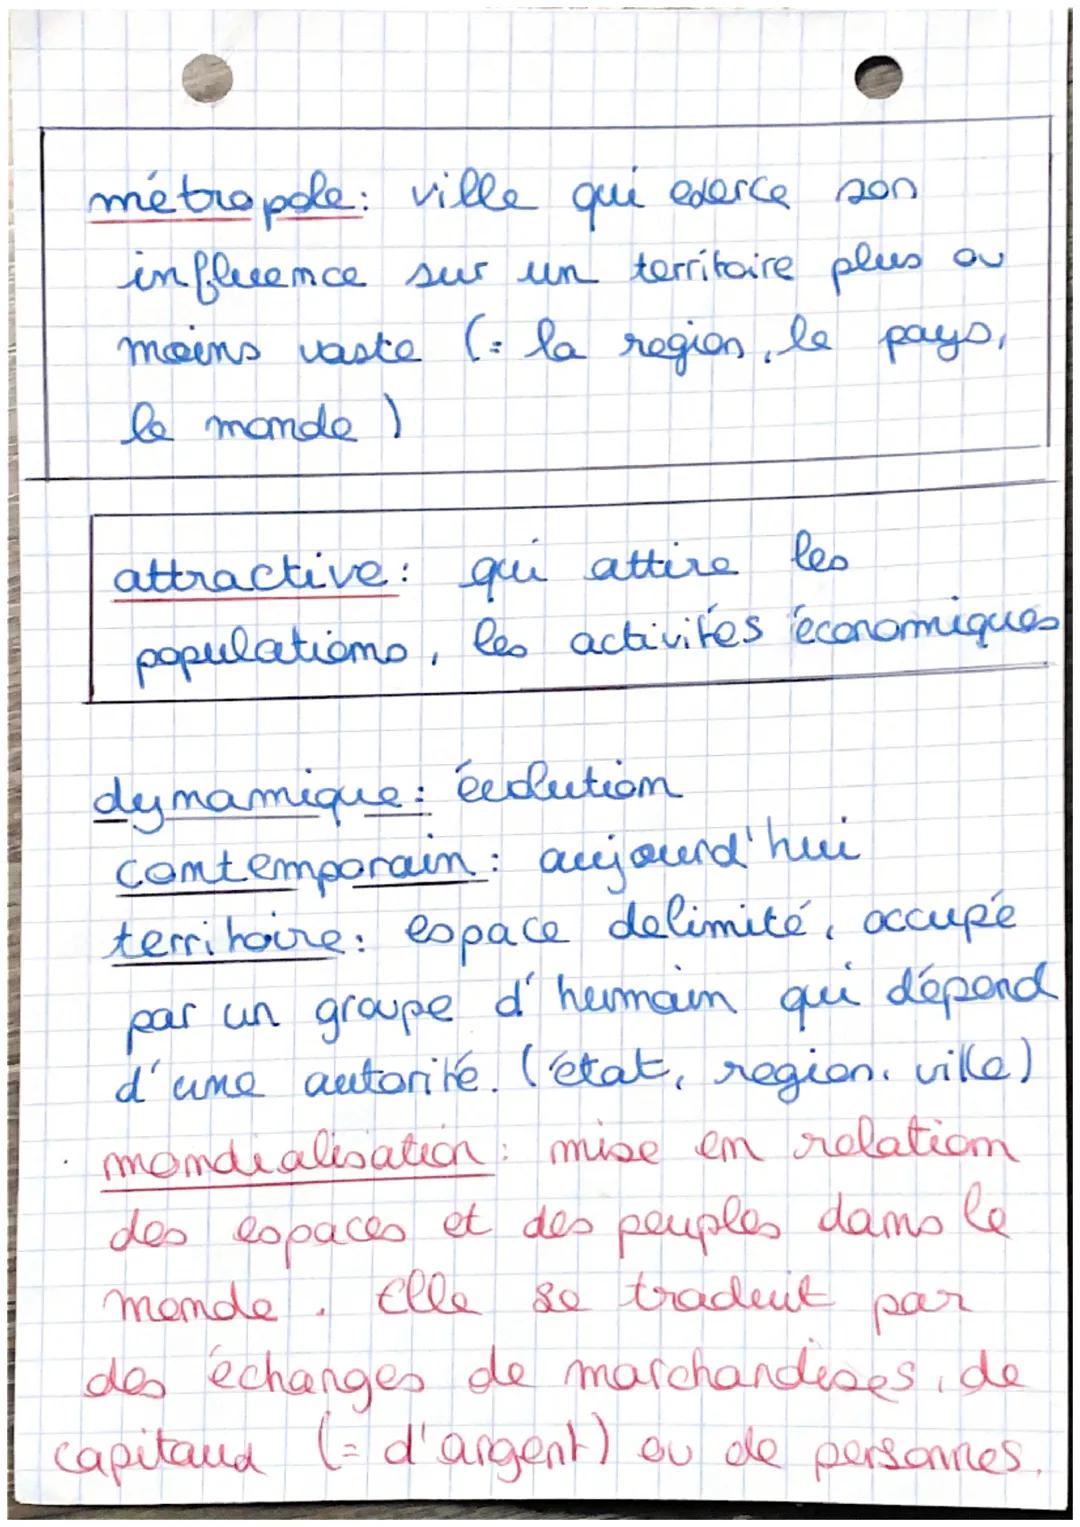 métropole: ville qui exerce son
influence sur un territoire plus ou
moins vaste (= la region, le pays,
le monde)
attractive: qui attire les
populations, les activités économiques
dynamique: évolution
contemporain: aujourd'hui
territoire: espace delimité, occupé
par un groupe d'humain qui dépend
d'une autorité. (état, region, ville)
mondialisation: mise en relation
des espaces et des peuples dans le
monde. Elle se traduit par
des échanges de marchandises, de
capitaux (= d'argent) ou de personnes.